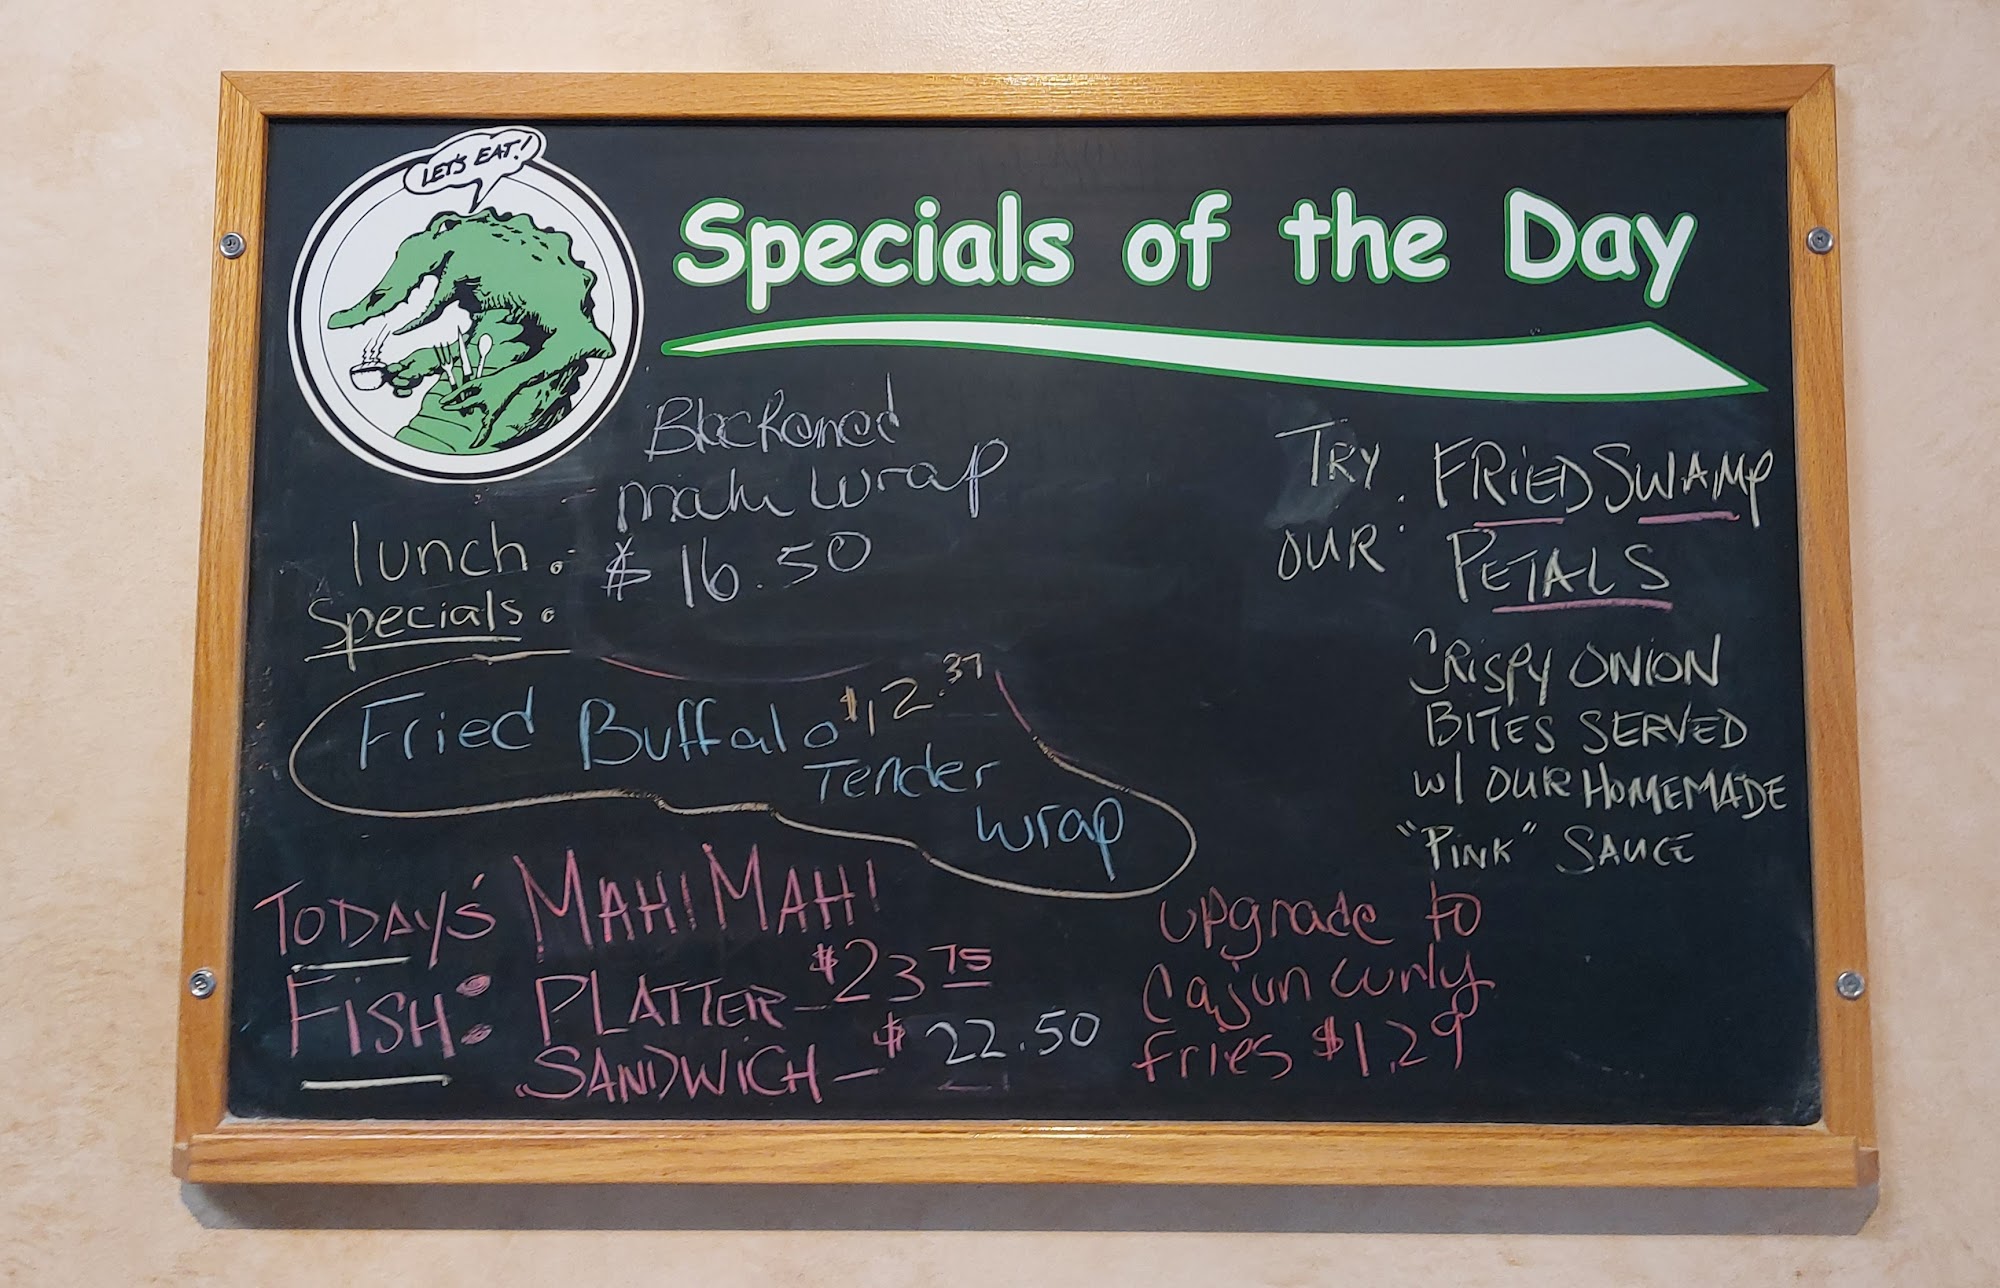 LET'S EAT!
Specials of the Day
Blackened
mahi wrap
$16.50
lunch
specials:
Fried Buffalo $12.37
Tender
wrap
TODAY'S
FISH:
MAHI MAHI
PLATTER - $23.75
SANDWICH - $22.50
TRY
OUR:
FRIED SWAMP
PETALS
CRISPY ONION
BITES SERVED
W/ OUR HOMEMADE
"PINK" SAUCE
upgrade to
Cajun curly
fries $1.29